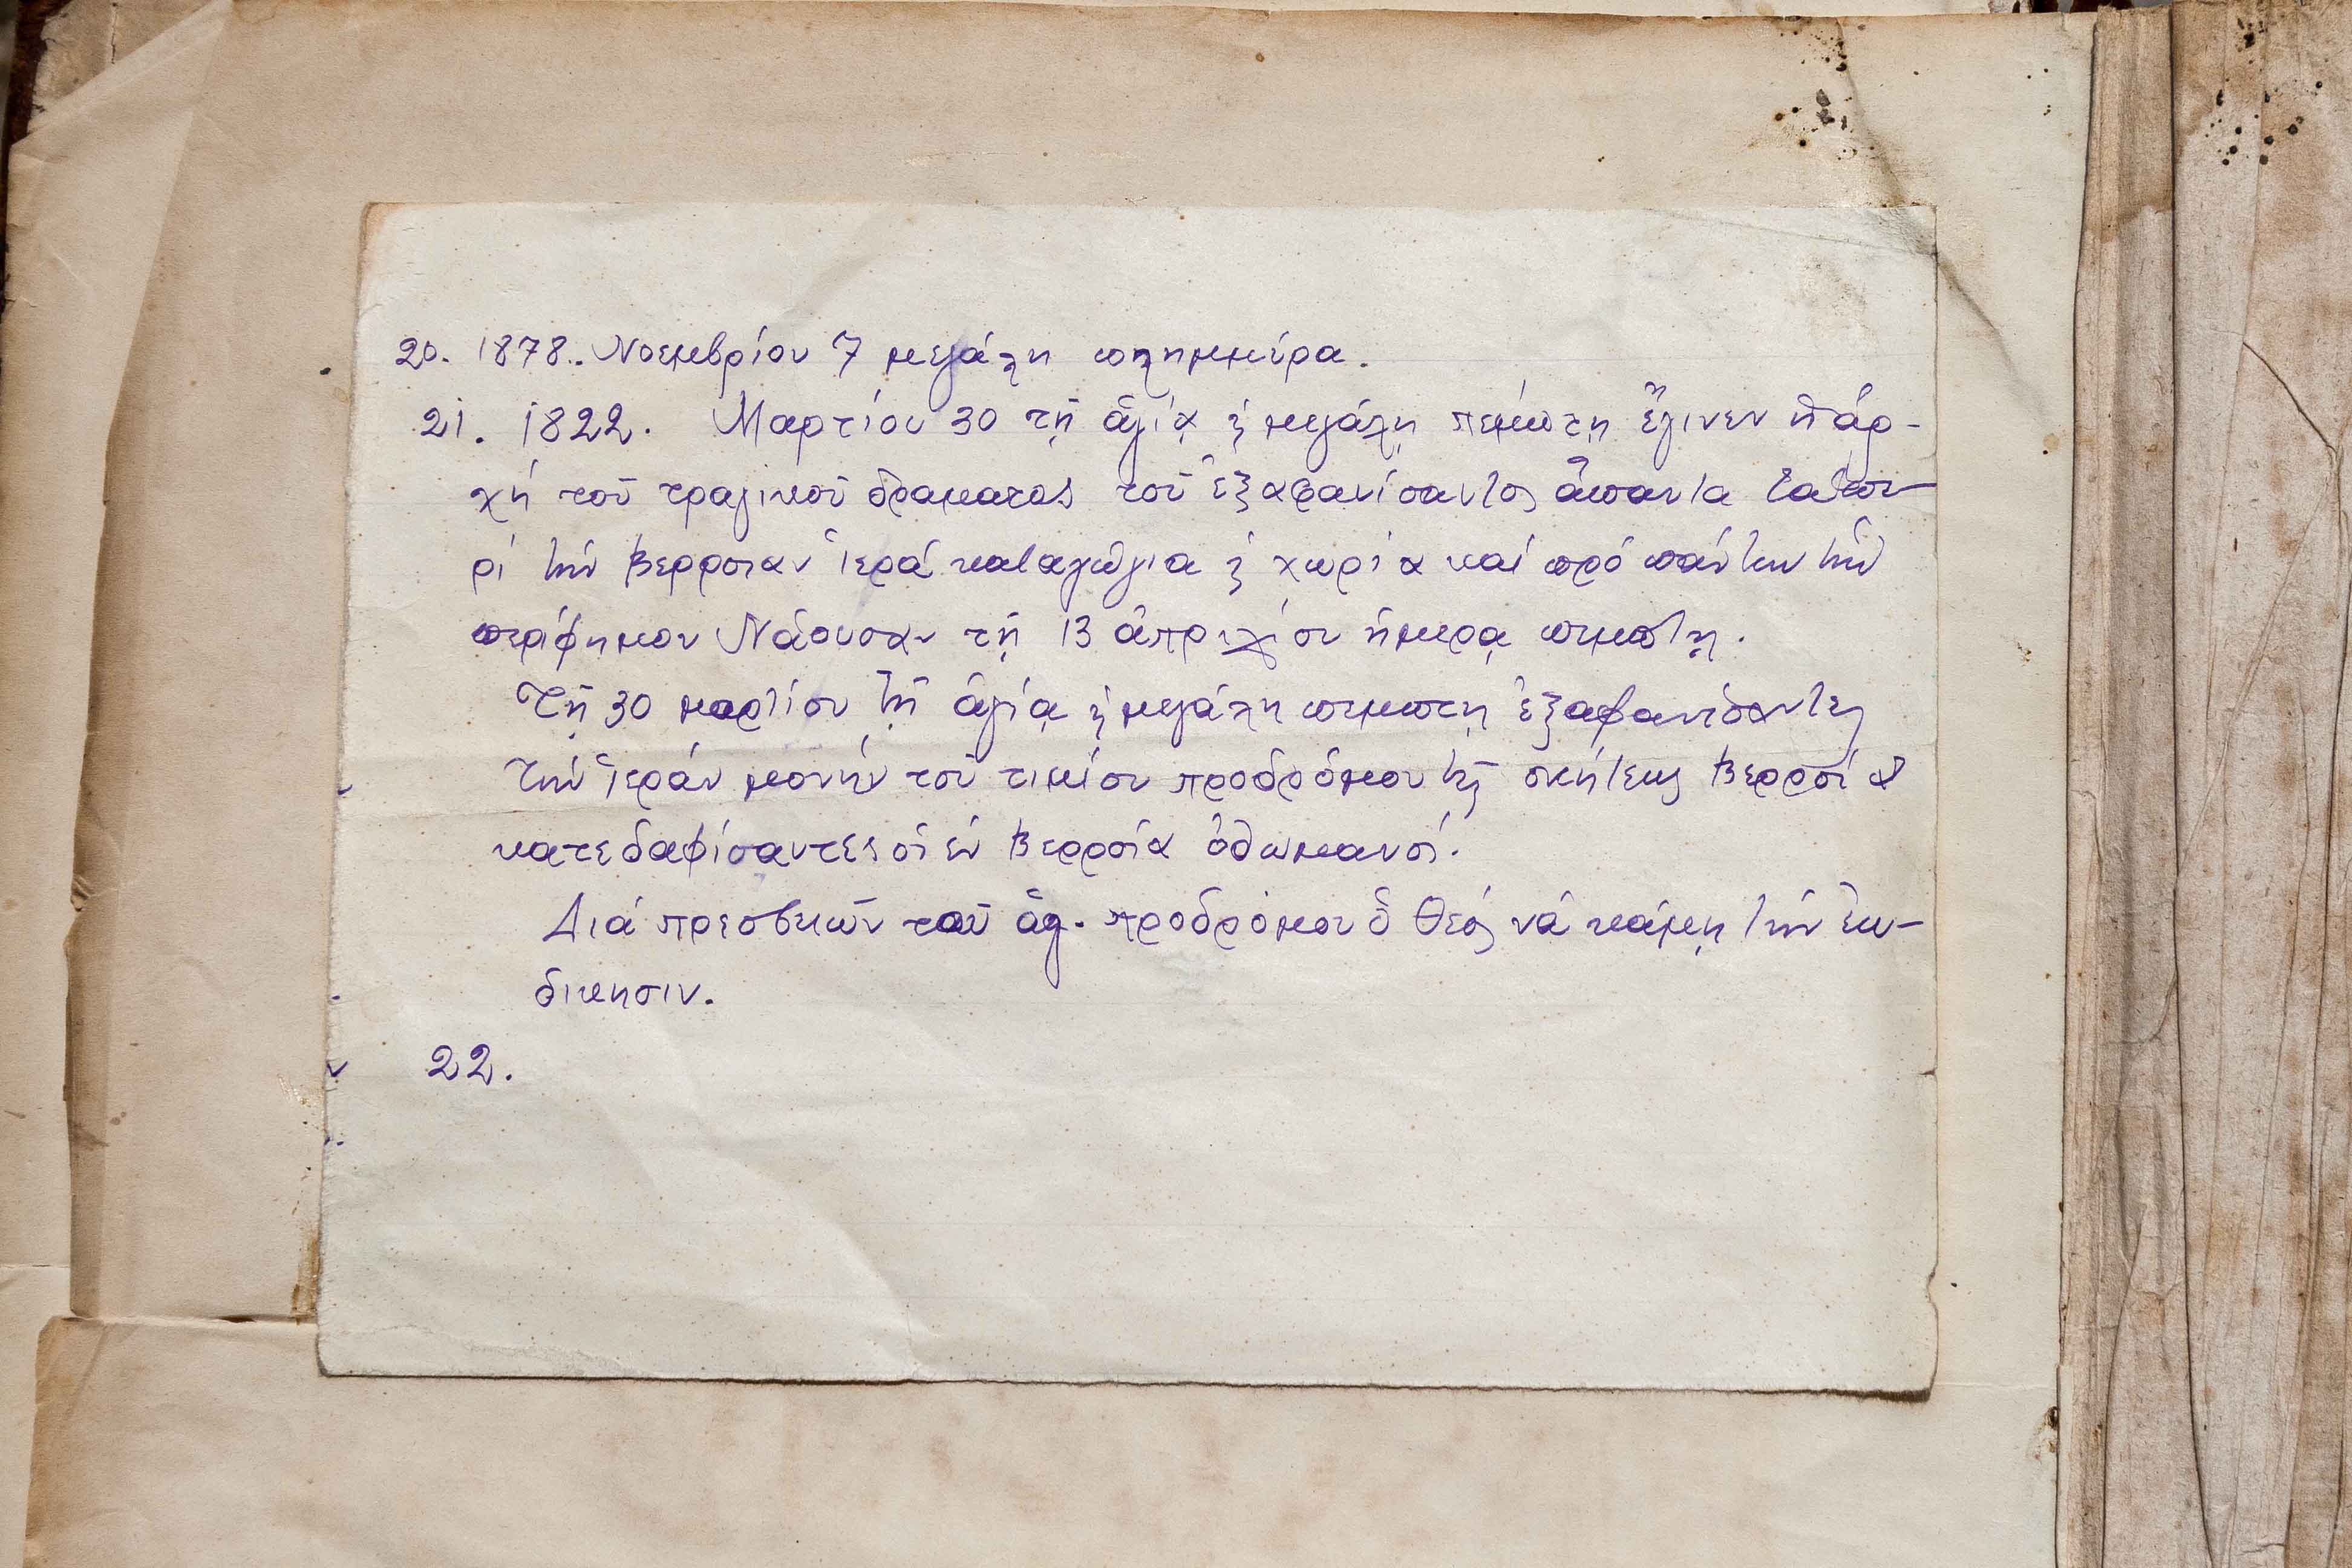 20. 1878. Νοεμβρίου 7 μεγάλη πλημμύρα.
21. 1822. Μαρτίου 30 τῇ ἁγίᾳ ϗ μεγάλῃ πέμπτῃ ἔγινεν ἡ ἀρ-
χή τοῦ τραγικοῦ δράματος τοῦ ἐξαφανίσαντος ἅπαντα τὰ πε-
ρί τήν Βερροιαν ἱερά καταγώγια ϗ χωρία καί πρό πάντων τήν
περίφημον Νάουσαν τῇ 13 ἀπριλίου ἡμερα πεμπτῃ.
Τῇ 30 μαρτίου τῇ ἁγίᾳ ϗ μεγάλη πεμπτη ἐξαφανισαντες
τήν ἱεράν μονήν τοῦ τιμίου προδρόμου τῆς σκήτεως Βερροίας
κατεδαφίσαντες οἱ ἐν Βερροίᾳ ὀθωμανοί.
Διά πρεσβειῶν τοῦ ἁγ. προδρόμου ὁ Θεός νά κάμῃ τήν ἐκ-
δικησιν.
22.